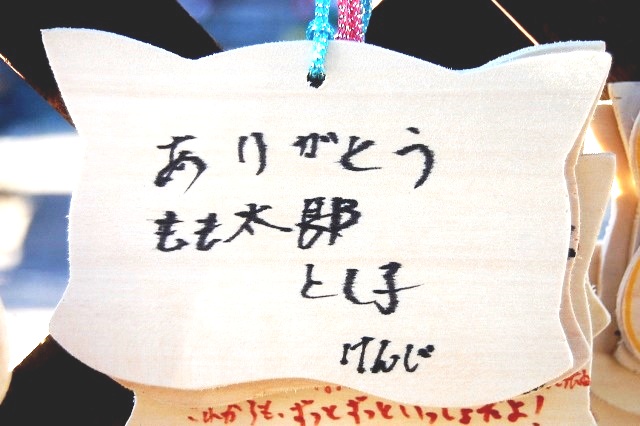 ありがとう
もも太郎
とし子
けんじ
これからも、ずっとずっといっしょだよ!